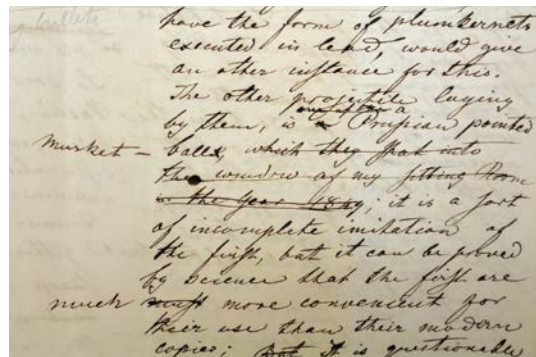 bullets
have the form of plumkernets
executed in lead, would give
an other instance for this.
The other projectile laying
by them, is a Prussian pointed
musket - balls, which they shot into
the window of my sitting Room
in the year 1849; it is a sort
of incomplete imitation of
the first, but it can be proved
by science that the first are
much must more convenient for
their use than their modern
copies; But it is questionable